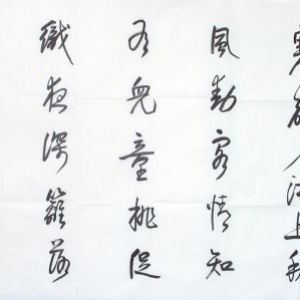 寒聲江上秋
風動客情知
有兒童挑促
織夜深籬落